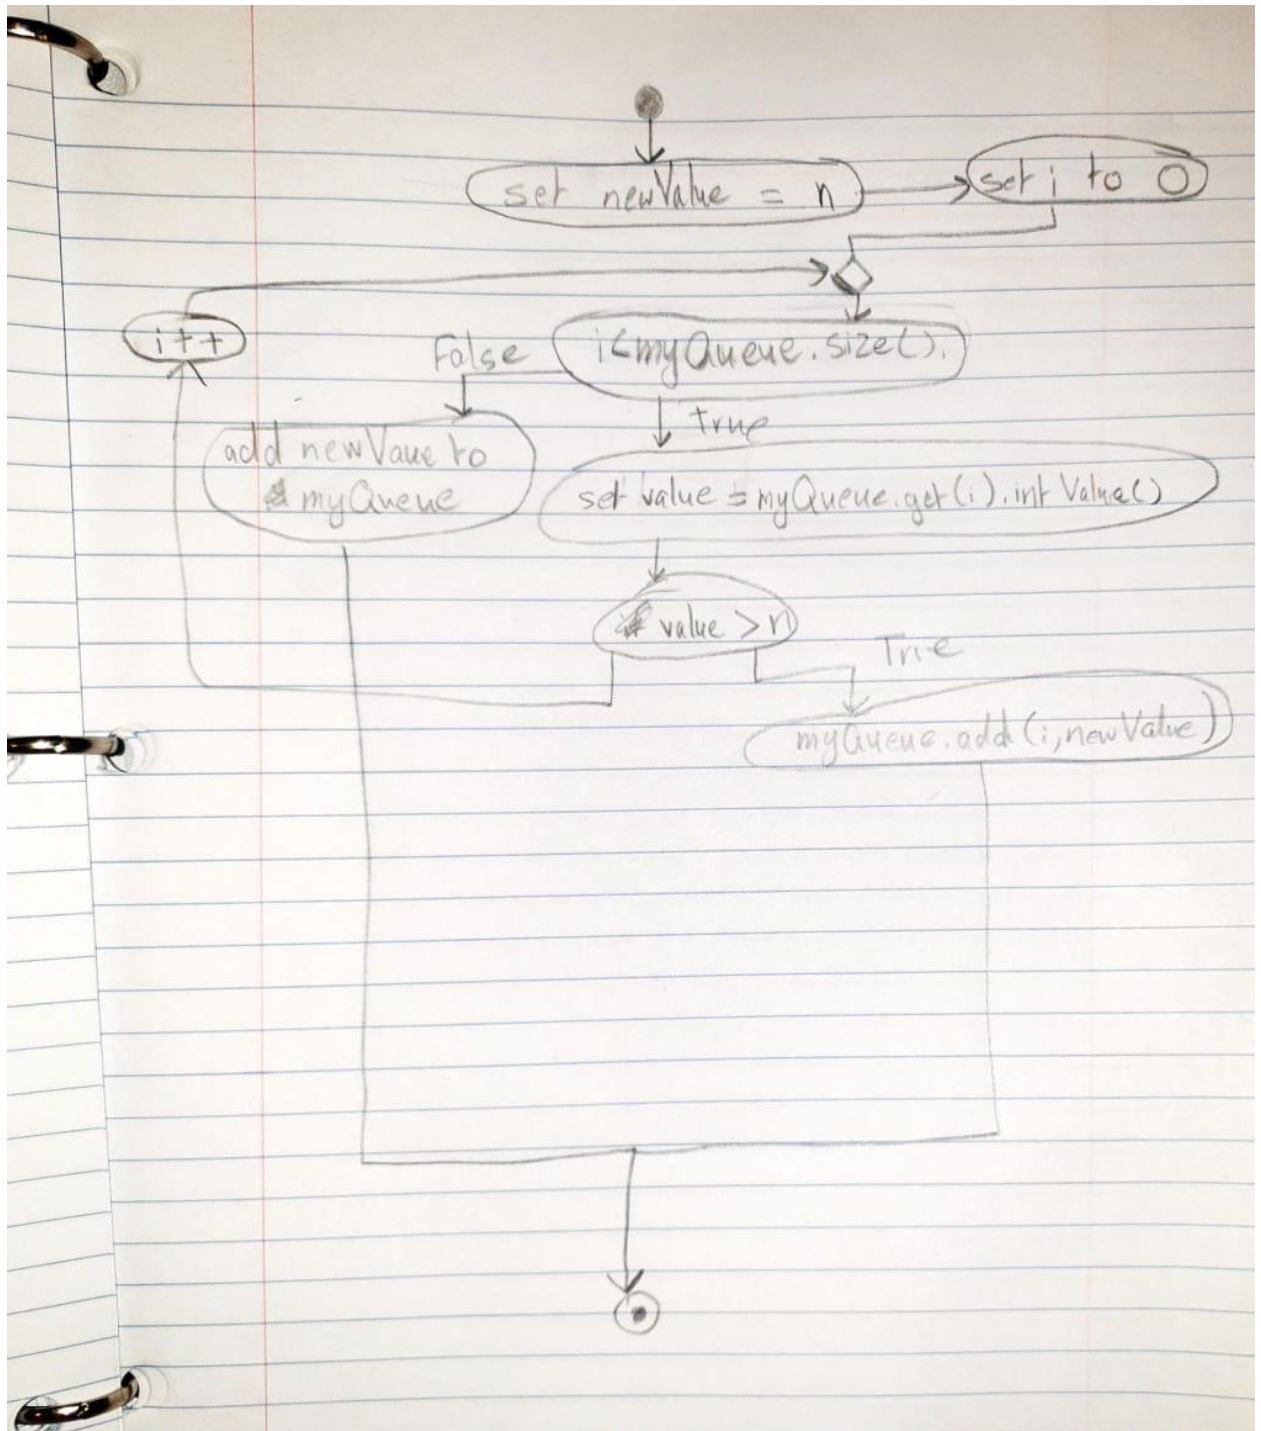 set newValue = n
set i to 0
i++
False
i<myQueue.size().
True
add newVaue to
myQueue
set value = myQueue.get(i).intValue()
value > n
True
myQueue.add(i,newValue)